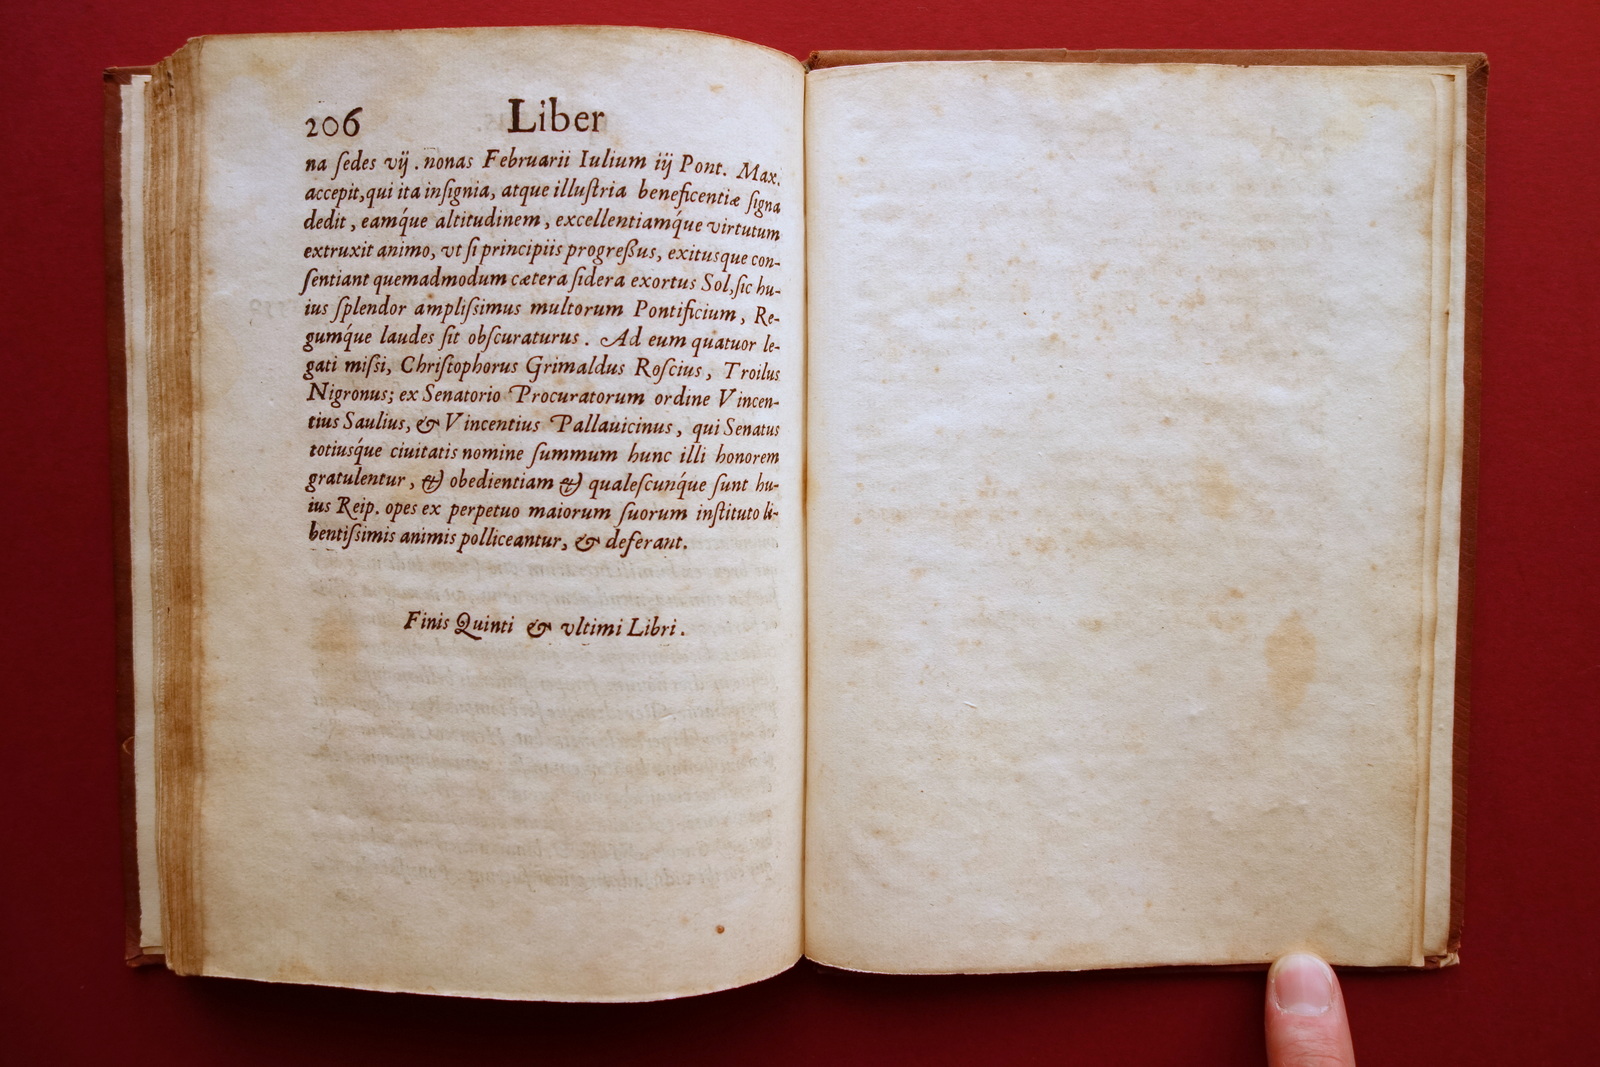 206 Liber
na ſedes vij. nonas Februarii Iulium iij Pont. Max.
accepit, qui ita inſignia, atque illuſtria beneficentiæ ſigna
dedit, eamq́ue altitudinem, excellentiamq́ue virtutum
extruxit animo, vt ſi principiis progreßus, exitusque con-
ſentiant quemadmodum cætera ſidera exortus Sol, ſic hu-
ius ſplendor ampliſsimus multorum Pontificium, Re-
gumq́ue laudes ſit obſcuraturus. Ad eum quatuor le-
gati miſsi, Chriſtophorus Grimaldus Roſcius, Troilus
Nigronus; ex Senatorio Procuratorum ordine Vincen-
tius Saulius, & Vincentius Pallauicinus, qui Senatus
totiusq́ue ciuitatis nomine ſummum hunc illi honorem
gratulentur, & obedientiam & qualeſcunq́ue ſunt hu-
ius Reip. opes ex perpetuo maiorum ſuorum inſtituto li-
bentiſsimis animis polliceantur, & deferant.
Finis Quinti & vltimi Libri.